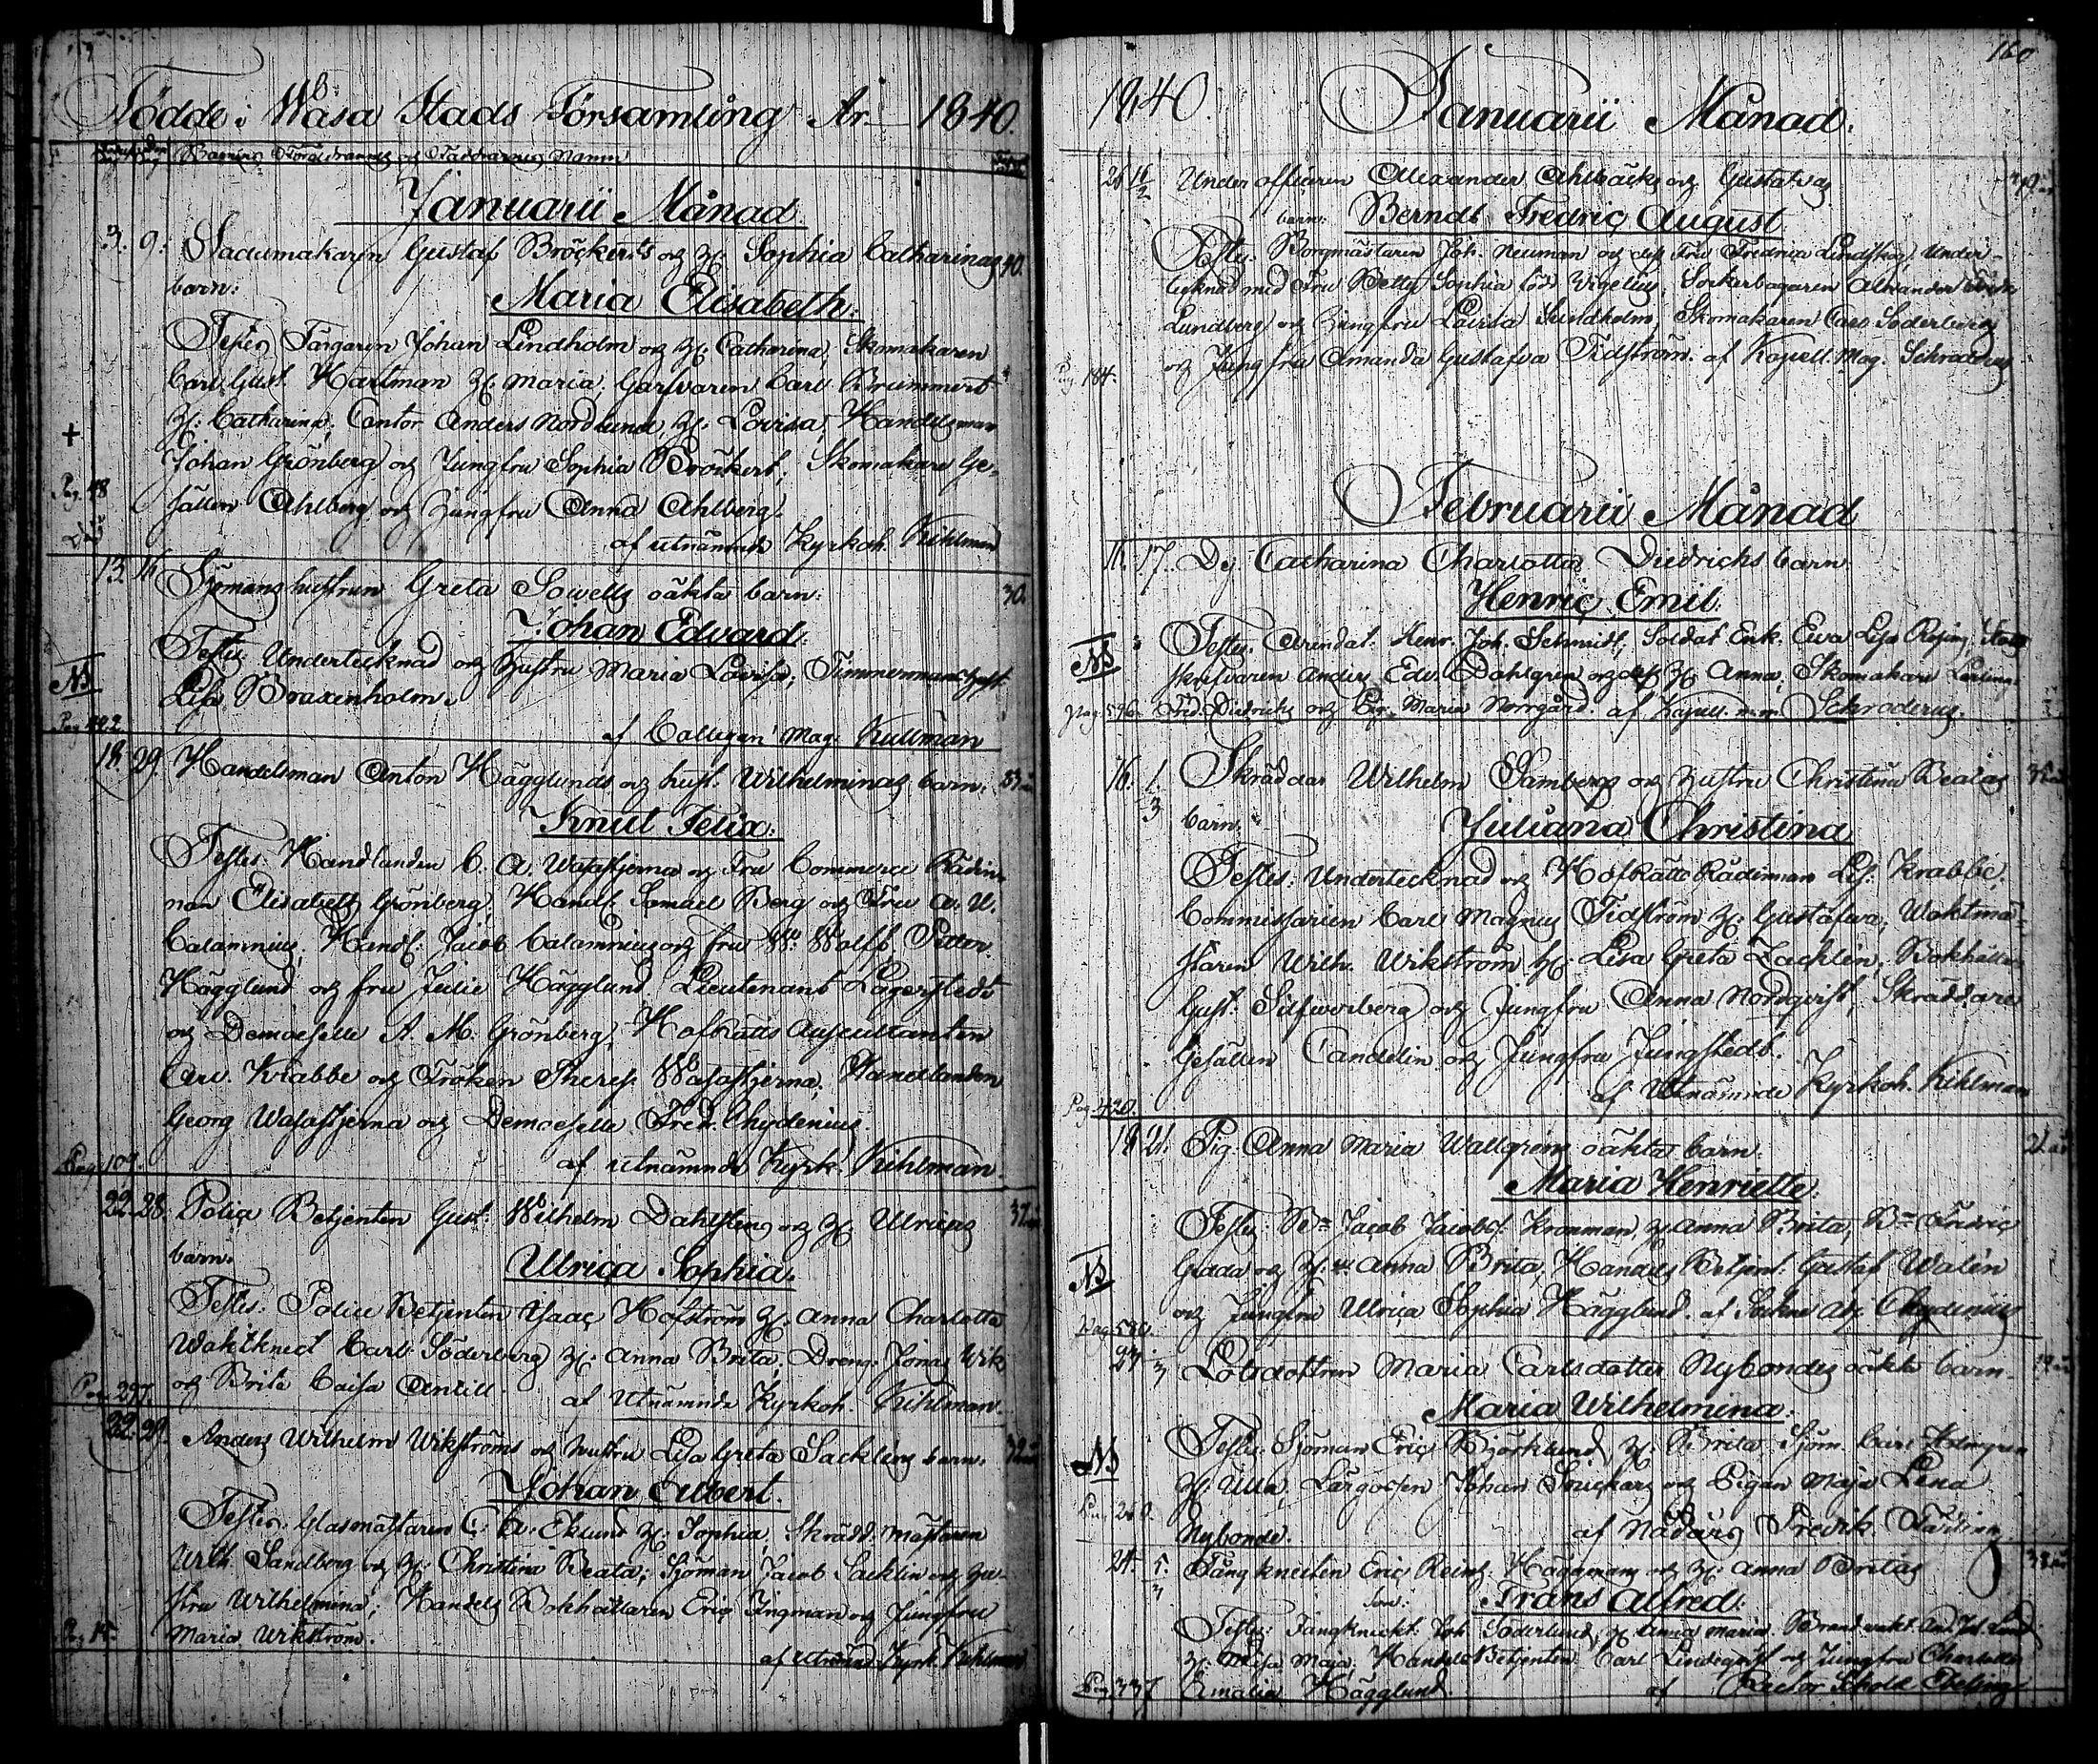 Födde i Wasa Stads Församling År 1840.
Barnens, Föräldrarnes og Faddrarnes Namn
Januarii Månad
3. 9. Gustaf Bröckerts og H. Sophia Catharinas 40.
barn:
Maria Elisabeth.
Testes Färgaren Johan Lindholm og H. Catharina, Skomakaren
Carl Gust. Hartman H. Maria, Garfvaren Carl Brummert
H: Catharina, Cantor Anders Nordlund, H: Lovisa, Handelsman
Johan Grönberg og Jungfru Sophia Bröckert, Skomakare Ge-
Pag. 48
sällen Ahlberg og Jungfru Anna Ahlberg.
Död
af utnämnde Kyrkoh. Kihlman
13. 16 Sjömans hustrun Greta Sowells oäkta barn. 30.
Johan Edvard.
Testes Undertecknad og hustru Maria Lovisa, Timmermans hust.
NB
Lisa Braxenholm.
af Collegan Mag. Kullman
18. 29. Handelsman Anton Hägglunds og hust. Wilhelminas barn. 33
Knut Felix.
Testes: Handlanden C. A. Wasastjerna og Fru Commerce Rådin-
nan Elisabeth Grönberg, Handl. Samuel Berg og Fru A. U.
Calamnius, Handl: Jacob Calamnius og fru W. Wolff, Petter
Hägglund og fru Julie Hägglund, Lieutenant Lagerstedt
og Demoeselle A. M. Grönberg, Hofrätts Auscultanten
Carl Krabbe og Fröken Theres. Wasastjerna, Handlanden
Georg Wasastjerna og Demoeselle Fred. Chydenius.
Pag. 109.
af utnämnde Kyrk. Kihlman.
22. 28. Police Betjenten Gust. Wilhelm Dahlsten og H. Ulricas 37
barn.
Ulrica Sophia.
Testes: Police Betjenten Isaac Hofström H: Anna Charlotta
Waktknect Carl Söderberg H: Anna Brita, Dreng: Jonas Wik
og Brita Caisa Antill.
Pag. 297.
af Utnämnde Kyrkoh. Kihlman.
22. 29. Anders Wilhelm Wikströms og hustru Lisa Greta Sacklens barn. 32
Johan Albert.
Testes: Glasmästaren C. A. Eklund H: Sophia, Skrädd. mästaren
Wilh. Sandberg og H: Christina Beata; Sjöman Jacob Sacklin og hu-
stru Wilhelmina; Handels Bokhållaren Eric Ingman og Jungfru
Pag 15.
Maria Wikström.
af utnämnd Kyrk. Kihlman
160
1840. Januarii Månad.
26 16/2 Under officeren Alexander Ahlbäcks og Gustafvas
barn. Berndt Fredric August
Testes: Borgmästaren Joh. Neuman og dess Fru Fredrica Lindskog, Under-
tecknad med Fru Betty Sophia född Wigelius, Sockerbagaren Alexander
Lundberg og Jungfru Lovisa Sundholm, Skomakaren Carl Söderberg
Pag. 184.
og Jungfru Amanda Gustafva Tidström. af Kapell. Mag. Schroderus
Februarii Månad
11. 17. Dej Catharina Charlotta Diedrichs barn
Henric Emil.
Testes: Arendat. Henr. Joh. Schmidt, Soldat Enk. Ewa Lisa Rosing,
NB
skrifvaren Anders Edv. Dahlgren og dess H. Anna, Skomakare Lärling.
Pag. 596. Fred. Diedrichs og Pig. Maria Norrgård. af Kapell. m.m. Schroderus.
16. 1/3 Skräddar Wilhelm Sandbergs og hustru Christina Beatas 35
barn.
Juliana Christina
Testes: Undertecknad og Hofrätts Rådinnan Krabbe,
Commissarien Carl Magnus Tidström H: Gustafva, Waktmä-
staren Wilh. Wikström H: Lisa Greta Sacklen, Bokhållare
Gust: Silfwerberg og Jungfru Anna Nordqvist, Skräddare
Gesällen Candelin og Jungfru Jungstedt.
Pag. 420.
af Utnämnde Kyrkoh. Kihlman
18 21. Pig. Anna Maria Wallgrens oäkta barn. 21.
Maria Henriette.
Testes: Bn Jacob Jacobs. Kronman, H: Anna Brita, Bn Fredric
NB
Gädda og H: Anna Brita, Handels Betjent. Gustaf Walén
Pag. 530.
og Jungfru Ulrica Sophia Hägglund. af Sockne Adj. Chydenius
Lotsdottren Maria Carlsdotter Nybondes oäkta barn. 19
Maria Wilhelmina.
Testes: Sjöman Eric Björklund H: Brita, Sjöm. Carl Holmgren
NB
H: Ulla, Lärgossen Johan Snickars og Pigan Maja Lena
Pag. 260.
Nybonde.
af Nådårs Fredrik
24 5/3 Fångknecten Eric Reinh. Häggmans og H: Anna Britas 38
son: Frans Alfred.
Testes: Fångknickt. Joh. Söderlund, H. Anna Maria. Brand wakt. And. Joh. Lund
H: Lisa Maja, Handels Betjenten Carl Lindeqvist og Jungfru Charlotta
Pag. 337 Amalia Hägglund.
af Rector Schola Ebeling